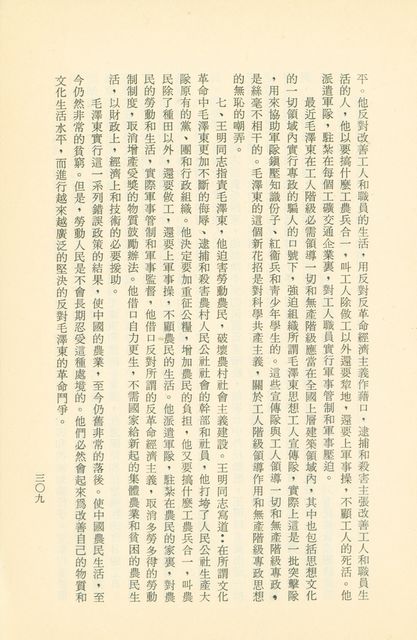 平。他反對改善工人和職員的生活，用反對反革命經濟主義作藉口，逮捕和殺害主張改善工人和職員生
活的人，他以要搞什麼工農兵合一，叫工人除做工以外還要犂地，還要上軍事操，不顧工人的死活。他
派遣軍隊，駐紮在每個工礦交通企業裏，對工人職員實行軍事管制和軍事壓迫。
最近毛澤東在工人階級必需領導一切和無產階級應當在全國上層建築領域內，其中也包括思想文化
的一切領域內實行專政的騙人的口號下，強迫組織所謂毛澤東思想工人宣傳隊，實際上這是一批突擊隊
，用來協助軍隊鎭壓知識份子、紅衞兵和青少年學生的。這些宣傳隊與工人領導一切和無產階級專政，
是絲毫不相干的。毛澤東的這個新花招是對科學共產主義，關於工人階級領導作用和無產階級專政思想
的無恥的嘲弄。
七、王明同志指責毛澤東，他迫害勞動農民，破壞農村社會主義建設。王明同志寫道：在所謂文化
革命中毛澤東更加不斷的侮辱、逮捕和殺害農村人民公社社會的幹部和社員，他打垮了人民公社生產大
隊原有的黨、團和行政組織。他決定要加重征公糧，增加農民的負担，他又要搞什麼工農兵合一，叫農
民除了種田以外，還要做工，還要上軍事操，不顧農民的生活。他派遣軍隊，駐紮在農民的家裏，對農
民的勞動和生活，實際軍事管制和軍事監督，他借口反對所謂的反革命經濟主義，取消多勞多得的勞動
制制度，取消增產受獎的物質鼓勵辦法。他借口自力更生，不需國家給新起的集體農業和貧困的農民生
活，以財政上，經濟上和技術的必要援助。
毛澤東實行這一系列錯誤政策的結果，使中國的農業，至今仍舊非常的落後。使中國農民生活，至
今仍然非常的貧窮。但是，勞動人民是不會長期忍受這種處境的。他們必然會起來爲改善自己的物質和
文化生活水平，而進行越來越廣泛的堅決的反對毛澤東的革命鬥爭。
三〇九